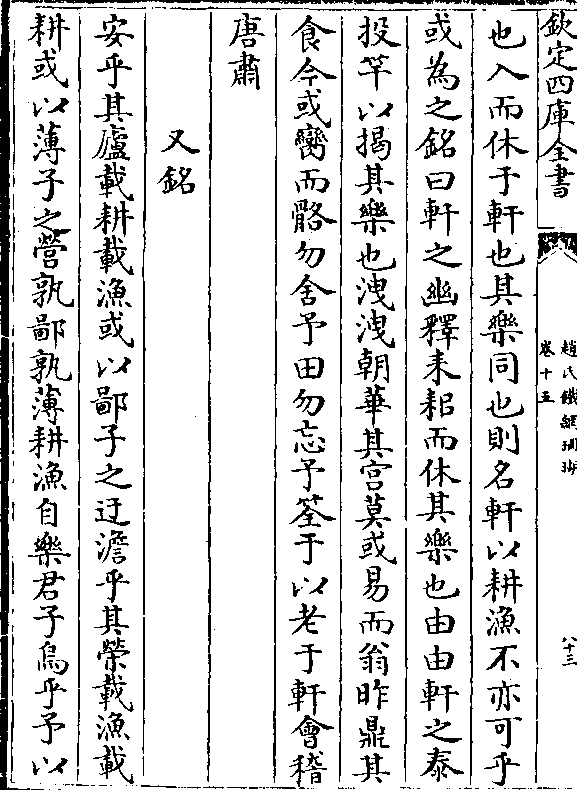 欽定四庫全書
趙氏鐵網珊瑚
卷十五
八十三
也入而休于軒也其樂同也則名軒以耕漁不亦可乎
或為之銘曰軒之幽釋耒耜而休其樂也由由軒之泰
投竿以揭其樂也洩洩朝華其宫莫或易而翁昨鼎其
食今或臠而骼勿舍予田勿忘予筌于以老于軒會稽
唐肅
又銘
安乎其廬載耕載漁或以鄙子之迂澹乎其榮載漁載
耕或以薄子之營孰鄙孰薄耕漁自樂君子烏乎予以